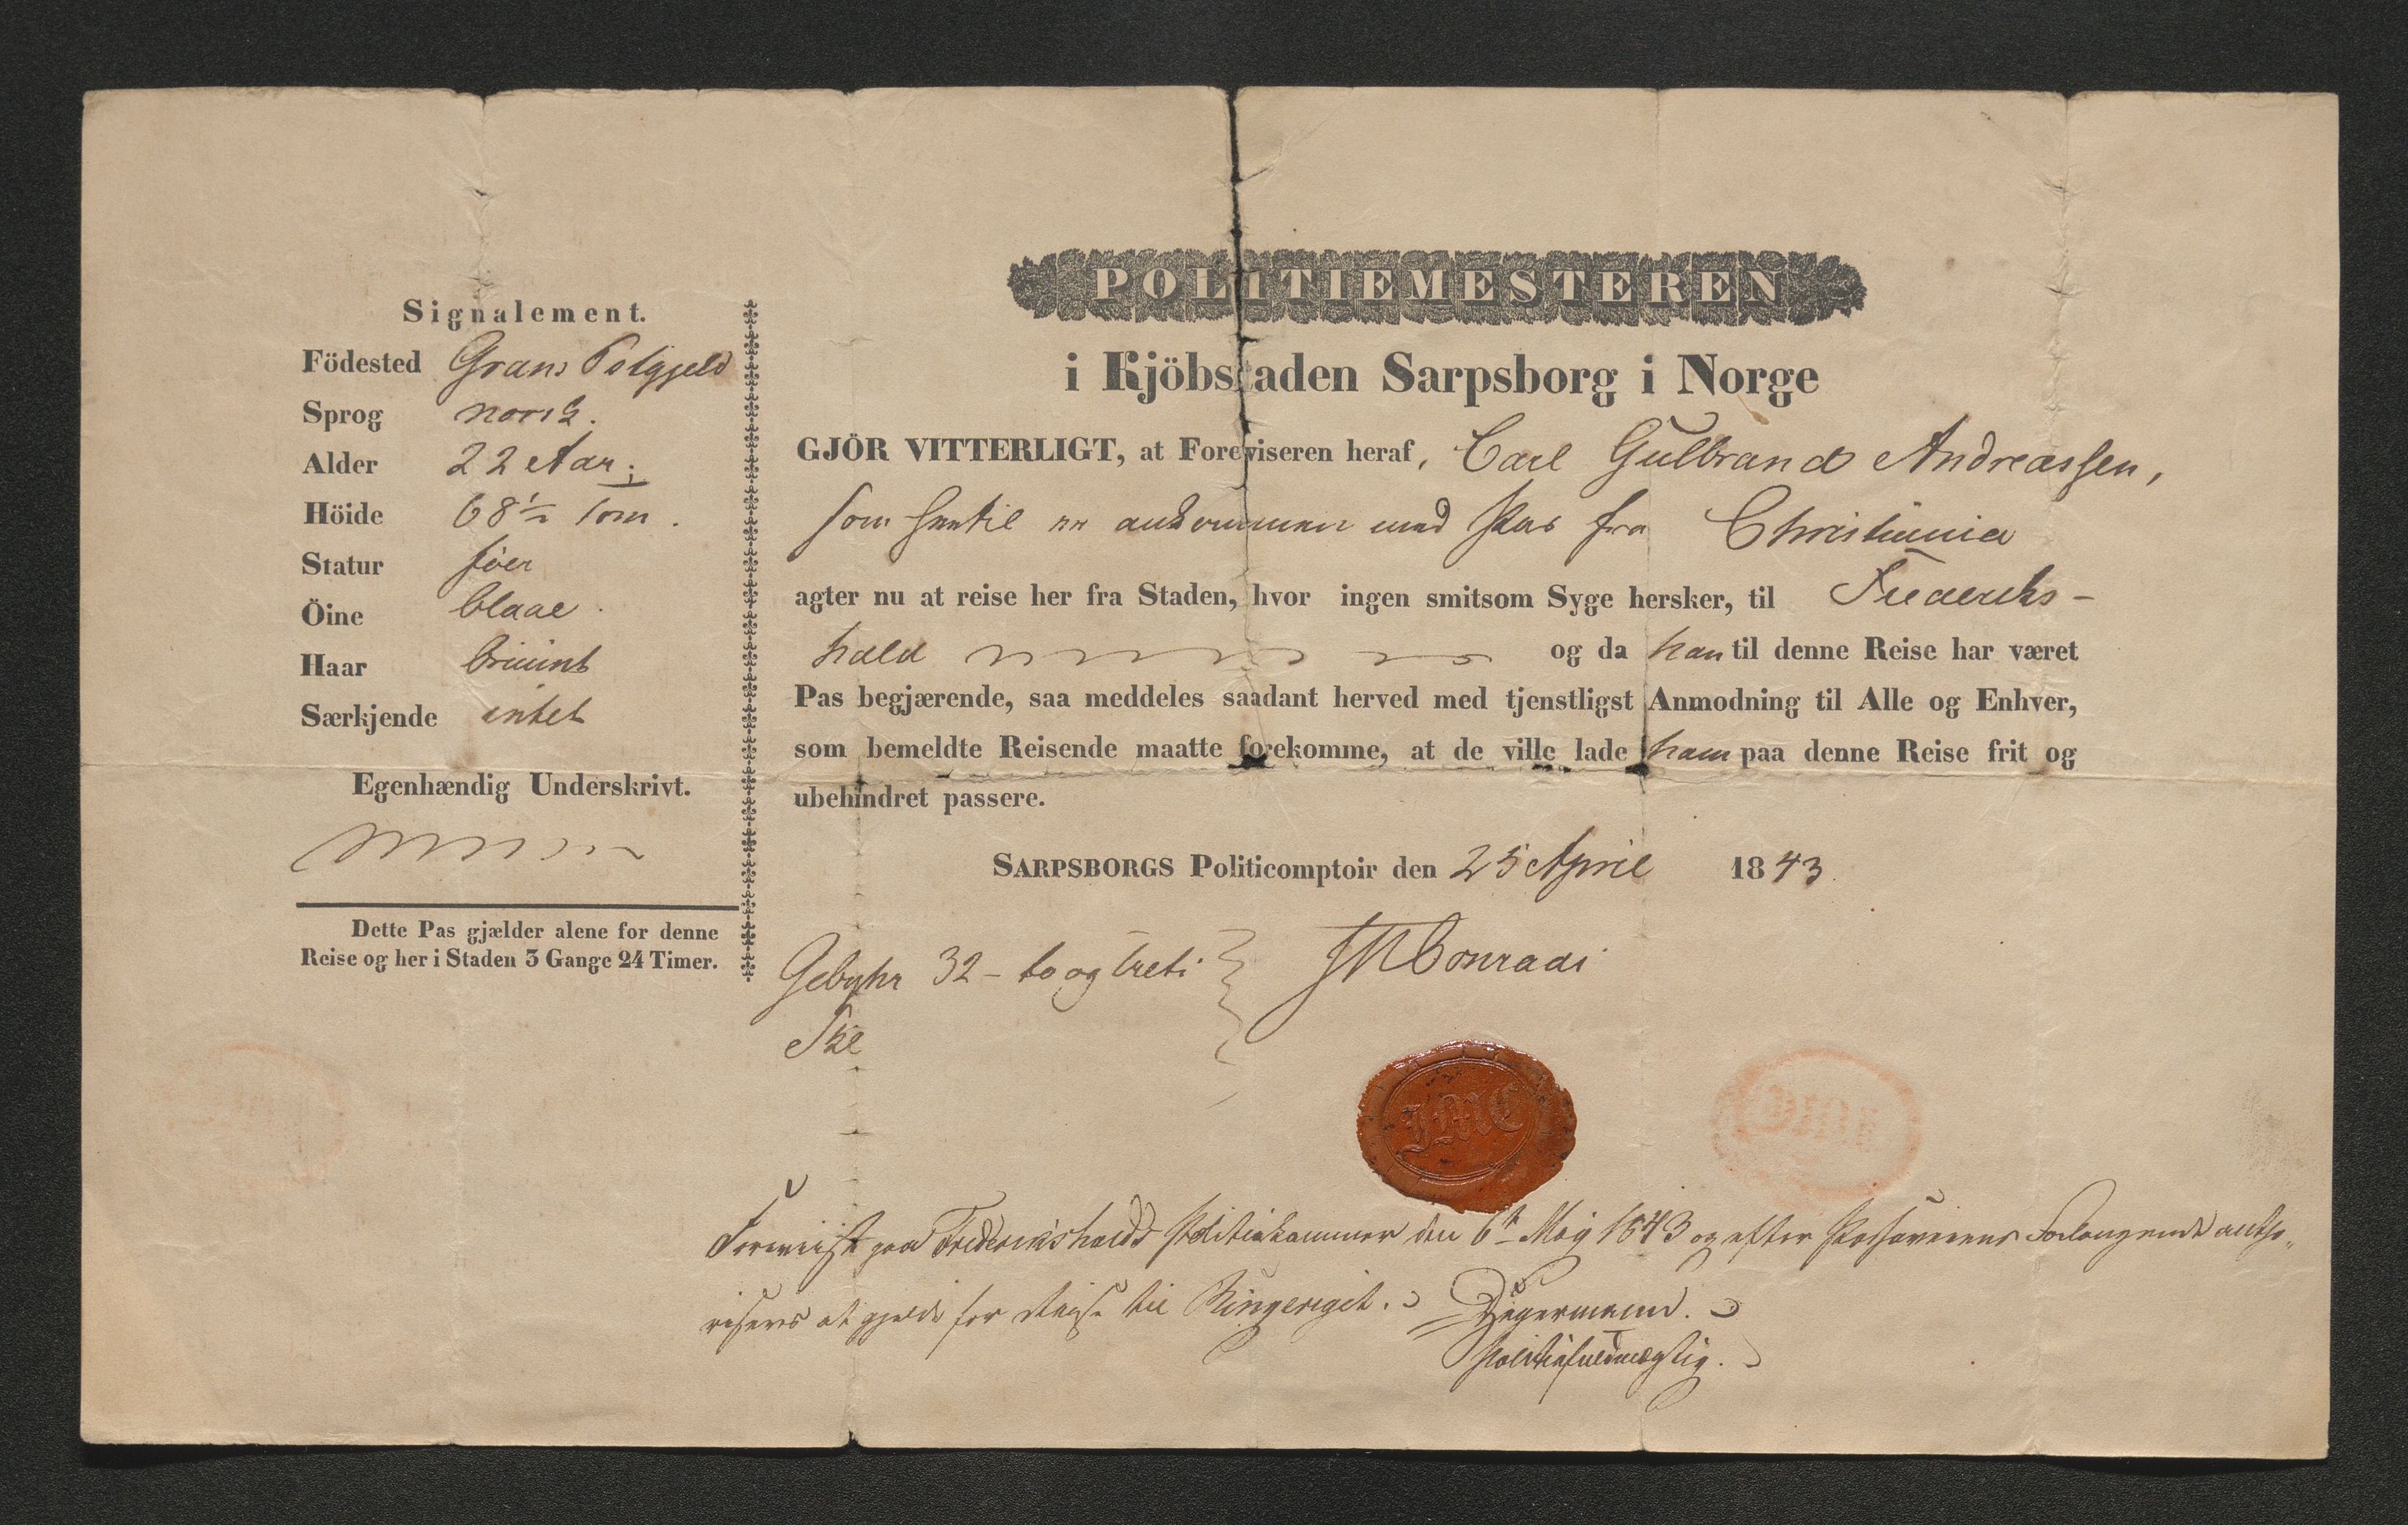 Signalement.
Födested Grans Pstgjeld
Sprog norsk.
Alder 22 Aar;
Höide 68½ Tom.
Statur før
Öine blaae.
Haar bruunt
Særkjende intet
Egenhændig Underskrivt.
Dette Pas gjælder alene for denne
Reise og her i Staden 3 Gange 24 Timer.
POLITIEMESTEREN
i Kjöbstaden Sarpsborg i Norge
GJÖR VITTERLIGT, at Foreviseren heraf, Carl Gulbrand Andreassen,
som hertil er ankommen med Pas fra Christiania
agter nu at reise her fra Staden, hvor ingen smitsom Syge hersker, til Frederiks-
hald og da han til denne Reise har været
Pas begjærende, saa meddeles saadant herved med tjenstligst Anmodning til Alle og Enhver,
som bemeldte Reisende maatte forekomme, at de ville lade ham paa denne Reise frit og
ubehindret passere.
SARPSBORGS Politicomptoir den 25 April 1843.
Gebyhr 32 - to og treti
Skl
JMConradi
JMC
Foreviist paa Frederikshalds Politiekammer den 6te May 1843 og efter Passørerens Forlangende autho-
riseres at gjelde for Reise til Ringeriget.
Politiefuldmægtig.